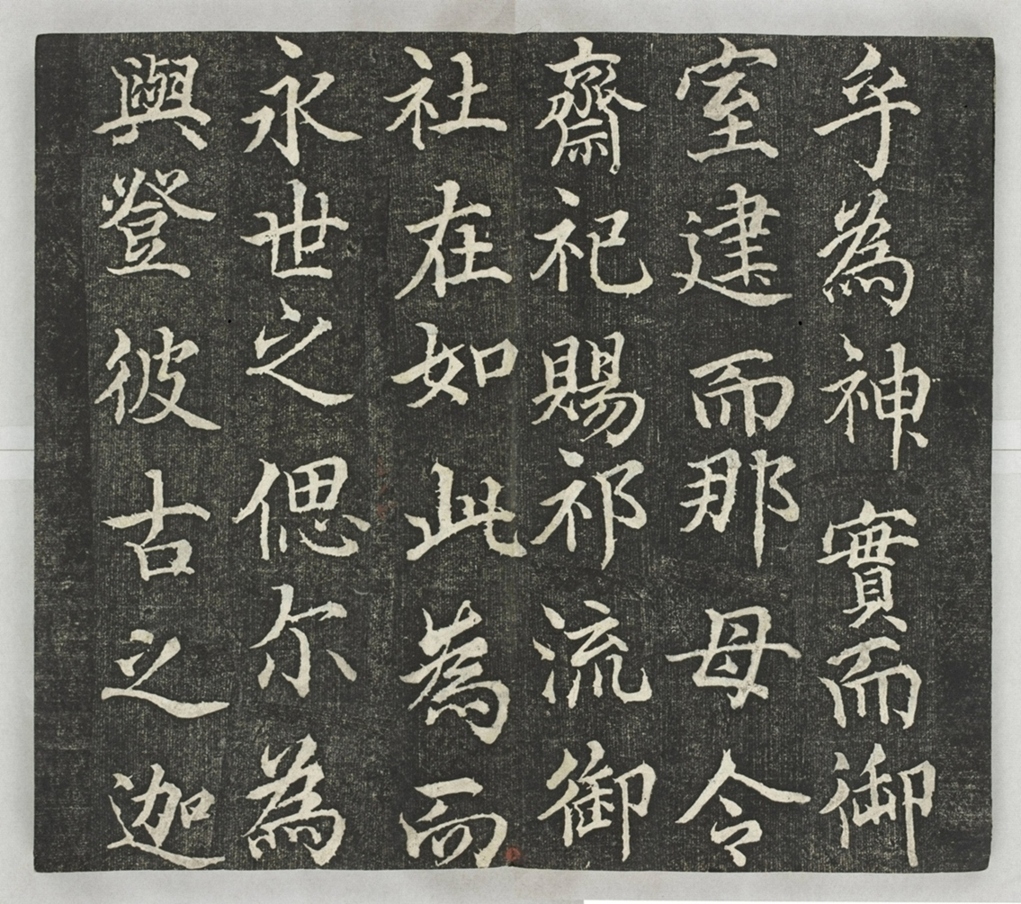 乎為神實而御
室建而那母令
齋祀賜祁流御
社在如此為而
永世之偲尔為
與登彼古之迦